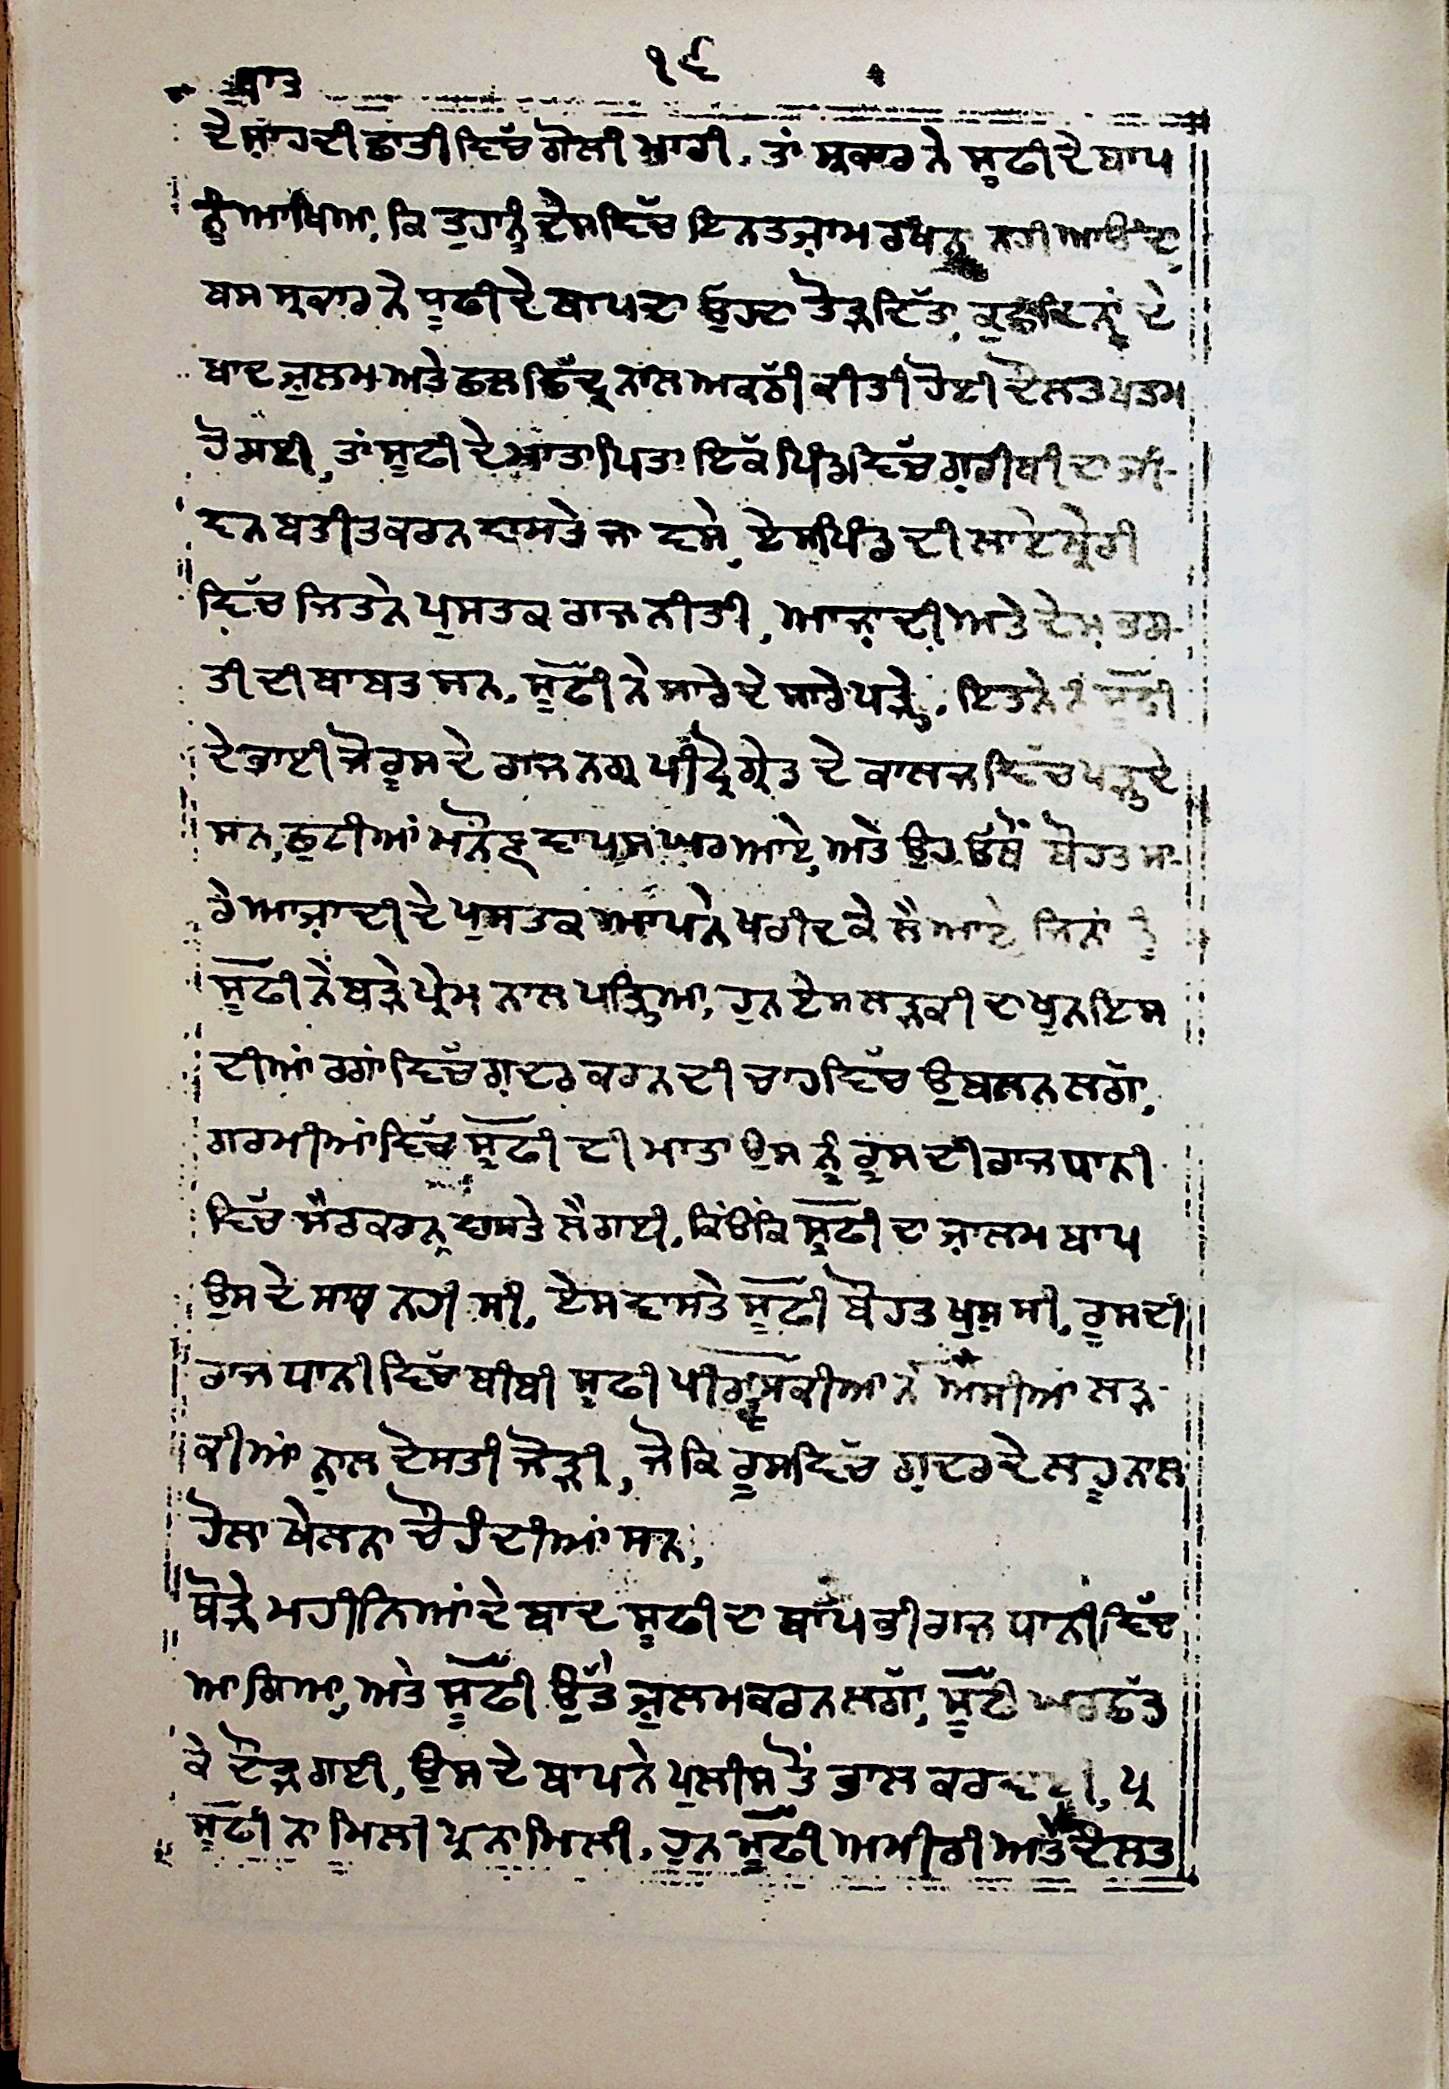 ੧੬
ਦੇ ਸ਼ਾਹ ਦੀ ਛਾਤੀ ਵਿੱਚ ਗੋਲੀ ਮਾਰੀ, ਤਾਂ ਸ੍ਰਕਾਰ ਨੇ ਸੂਫੀ ਦੇ ਬਾਪ
ਨੂੰ ਆਖਿਆ, ਕਿ ਤੁਹਾਨੂੰ ਦੇਸ ਵਿੱਚ ਇਨਤਜ਼ਾਮ ਰਖਨਾ ਨਹੀ ਆਉਂਦਾ,
ਬਸ ਸ੍ਰਕਾਰ ਨੇ ਸੂਫੀ ਦੇ ਬਾਪ ਦਾ ਉਹਦਾ ਤੋੜ ਦਿੱਤਾ, ਕੁਛ ਦਿਨਾਂ ਦੇ
ਬਾਦ ਜ਼ੁਲਮ ਅਤੇ ਛਲ ਛਿੱਦ੍ਰ ਨਾਲ ਅਕਠੀ ਕੀਤੀ ਹੋਈ ਦੌਲਤ ਖਤਮ
ਹੋ ਗਈ, ਤਾਂ ਸੂਫੀ ਦੇ ਮਾਤਾ ਪਿਤਾ ਇਕੱ ਪਿੰਡ ਵਿੱਚ ਗ਼ਰੀਬੀ ਦਾ ਜੀ-
ਵਨ ਬਤੀਤ ਕਰਨ ਵਾਸਤੇ ਜਾ ਵਸੇ, ਏਸ ਪਿੰਡ ਦੀ ਲਾਏਬ੍ਰੇਰੀ
ਵਿੱਚ ਜਿਤਨੇ ਪੁਸਤਕ ਰਾਜ ਨੀਤੀ, ਆਜ਼ਾਦੀ ਅਤੇ ਦੇਸ਼ ਭਗ-
ਤੀ ਦੀ ਬਾਬਤ ਸਨ, ਸੂਫੀ ਨੇ ਸਾਰੇ ਦੇ ਸਾਰੇ ਪੜ੍ਹੇ, ਇਤਨੇ ਨੂੰ ਸੂਫੀ
ਦੇ ਭਾਈ ਜੋ ਰੂਸ ਦੇ ਰਾਜ ਨਗ੍ਰ ਪੀਟ੍ਰੋਗ੍ਰੇਡ ਦੇ ਕਾਲਜ ਵਿੱਚ ਪੜ੍ਹਦੇ
ਸਨ, ਛੁਟੀਆਂ ਮਨੌਣ ਵਾਪਸ ਘਰ ਆਏ, ਅਤੇ ਉਹ ਓਥੋਂ ਬੌਹਤ ਸਾ-
ਰੇ ਆਜ਼ਾਦੀ ਦੇ ਪੁਸਤਕ ਆਪਨੇ ਖਰੀਦ ਕੇ ਲੈ ਆਏ, ਜਿਨਾਂ ਨੂੰ
ਸੂਫੀ ਨੇ ਬੜੇ ਪ੍ਰੇਮ ਨਾਲ ਪੜ੍ਹਿਆ, ਹੁਨ ਏਸ ਲੜਕੀ ਦਾ ਖੂਨ ਇਸ
ਦੀਆਂ ਰਗਾਂ ਵਿੱਚ ਗ਼ਦਰ ਕਰਨ ਦੀ ਚਾਹ ਵਿੱਚ ਉਬਲਨ ਲਗਾ,
ਗਰਮੀਆਂ ਵਿੱਚ ਸੂਫੀ ਦੀ ਮਾਤਾ ਉਸ ਨੂੰ ਰੂਸ ਦੀ ਰਾਜ ਧਾਨੀ
ਵਿੱਚ ਸੈਰ ਕਰਨ ਵਾਸਤੇ ਲੈ ਗਈ, ਕਿਉਂਕਿ ਸੂਫੀ ਦਾ ਜ਼ਾਲਮ ਬਾਪ
ਉਸ ਦੇ ਸਾਥ ਨਹੀ ਸੀ, ਏਸ ਵਾਸਤੇ ਸੂਫੀ ਬੌਹਤ ਖੁਸ਼ ਸੀ, ਰੂਸ ਦੀ
ਰਾਜ ਧਾਨੀ ਵਿੱਚ ਬੀਬੀ ਸੂਫੀ ਪੀਰੂਸਕੀਆ ਨੇ ਐਸੀਆਂ ਲੜ-
ਕੀਆਂ ਨਾਲ ਦੋਸਤੀ ਜੋੜੀ, ਜੋ ਕਿ ਰੂਸ ਵਿੱਚ ਗ਼ਦਰ ਦੇ ਲਹੂ ਨਾਲ
ਹੋਲਾ ਖੇਲਨਾ ਚੌਹੰਦੀਆਂ ਸਨ,
ਥੋੜੇ ਮਹੀਨਿਆਂ ਦੇ ਬਾਦ ਸੂਫੀ ਦਾ ਬਾਪ ਭੀ ਰਾਜ ਧਾਨੀ ਵਿੱਚ
ਆ ਗਿਆ, ਅਤੇ ਸੂਫੀ ਉੱਤੇ ਜ਼ੁਲਮ ਕਰਨ ਲਗਾ, ਸੂਫੀ ਘਰ ਛੱਡ
ਕੇ ਦੌੜ ਗਈ, ਉਸ ਦੇ ਬਾਪ ਨੇ ਪੁਲੀਸ ਤੋਂ ਭਾਲ ਕਰਵਾਈ, ਪ੍ਰ
ਸੂਫੀ ਨਾ ਮਿਲੀ ਪ੍ਰ ਨਾ ਮਿਲੀ, ਹੁਨ ਸੂਫੀ ਅਮੀਰੀ ਅਤੇ ਦੌਲਤ